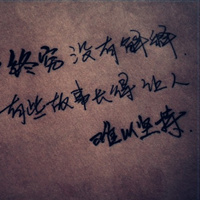 终究没有
有些故事长得让人
难以坚持.